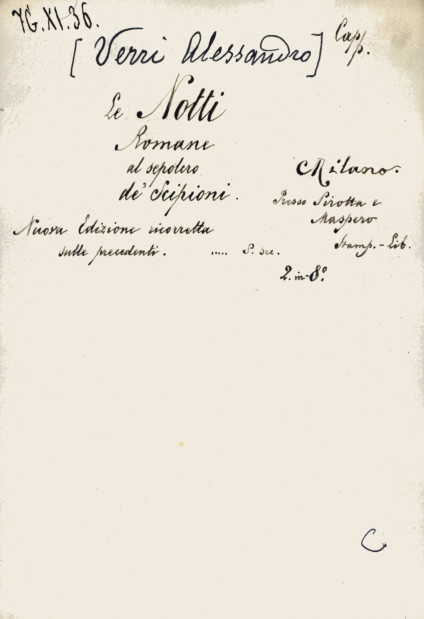 7G.XI.36.
[Verri Alessandro] Capp.
Le Notti
Romane
al sepolcro
de' Scipioni.
Milano.
Presso Pirotta e
Maspero
Stamp.-Lib.
Nuova Edizione ricorretta
sulle precedenti. ..... S. sec.
2. in-8°
C